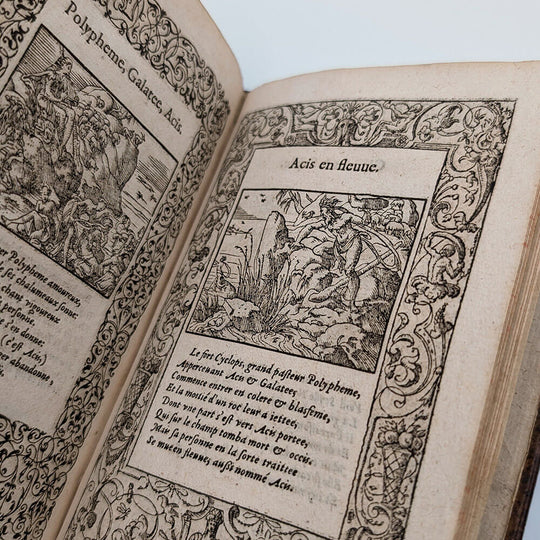 Polypheme, Galatee, Acis.
Polypheme amoureux,
ses chalumeaux
chant
personne.
s'en
Acis)
abandonne,
Acis en fleuue.
Le fier Cyclops, grand pasteur Polypheme,
Apperceuant Acis & Galatee,
Commence entrer en colere & blasfeme,
Et la moitié d'un roc leur a iettee:
Dont vne part s'est vers Acis portee,
Qui sur le champ tomba mort & occis.
Mais sa personne en la sorte traittee
Se mue en fleuue, außi nommé Acis.